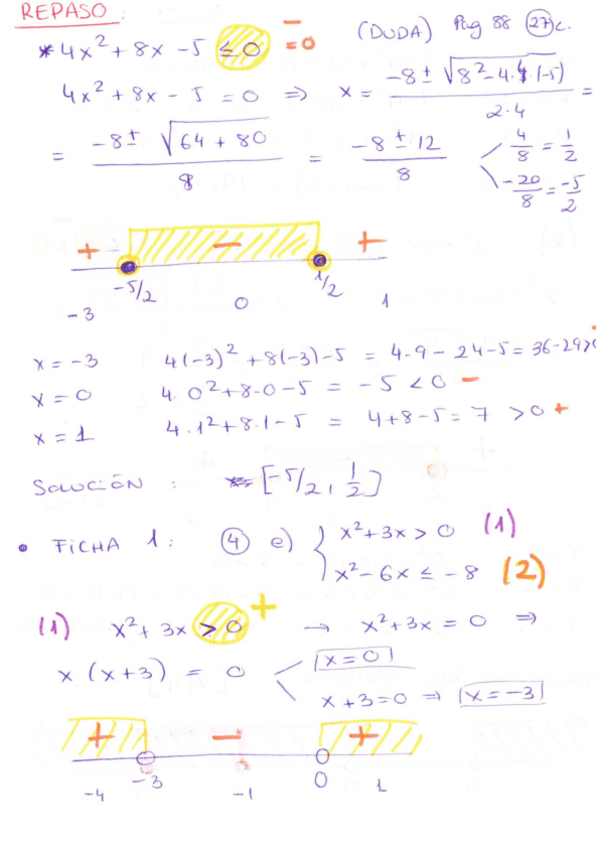 REPASO:
* 4x² + 8x - 5 ≤ 0 - = 0 (DUDA) Pág 88 27 c.
4x² + 8x - 5 = 0 ⇒ x = (-8 ± √(8² - 4·4·(-5))) / (2·4) =
= (-8 ± √(64 + 80)) / 8 = (-8 ± 12) / 8 4/8 = 1/2
-20/8 = -5/2
+ - +
-5/2 1/2
-3 0 1
x = -3 4(-3)² + 8(-3) - 5 = 4·9 - 24 - 5 = 36 - 29 > 0
x = 0 4·0² + 8·0 - 5 = -5 < 0 -
x = 1 4·1² + 8·1 - 5 = 4 + 8 - 5 = 7 > 0 +
SOLUCIÓN : [-5/2, 1/2]
• FICHA 1: 4 e) { x² + 3x > 0 (1)
x² - 6x ≤ -8 (2)
(1) x² + 3x > 0 + → x² + 3x = 0 ⇒
x (x + 3) = 0 x = 0
x + 3 = 0 ⇒ x = -3
+ - +
-3 0
-4 -1 1